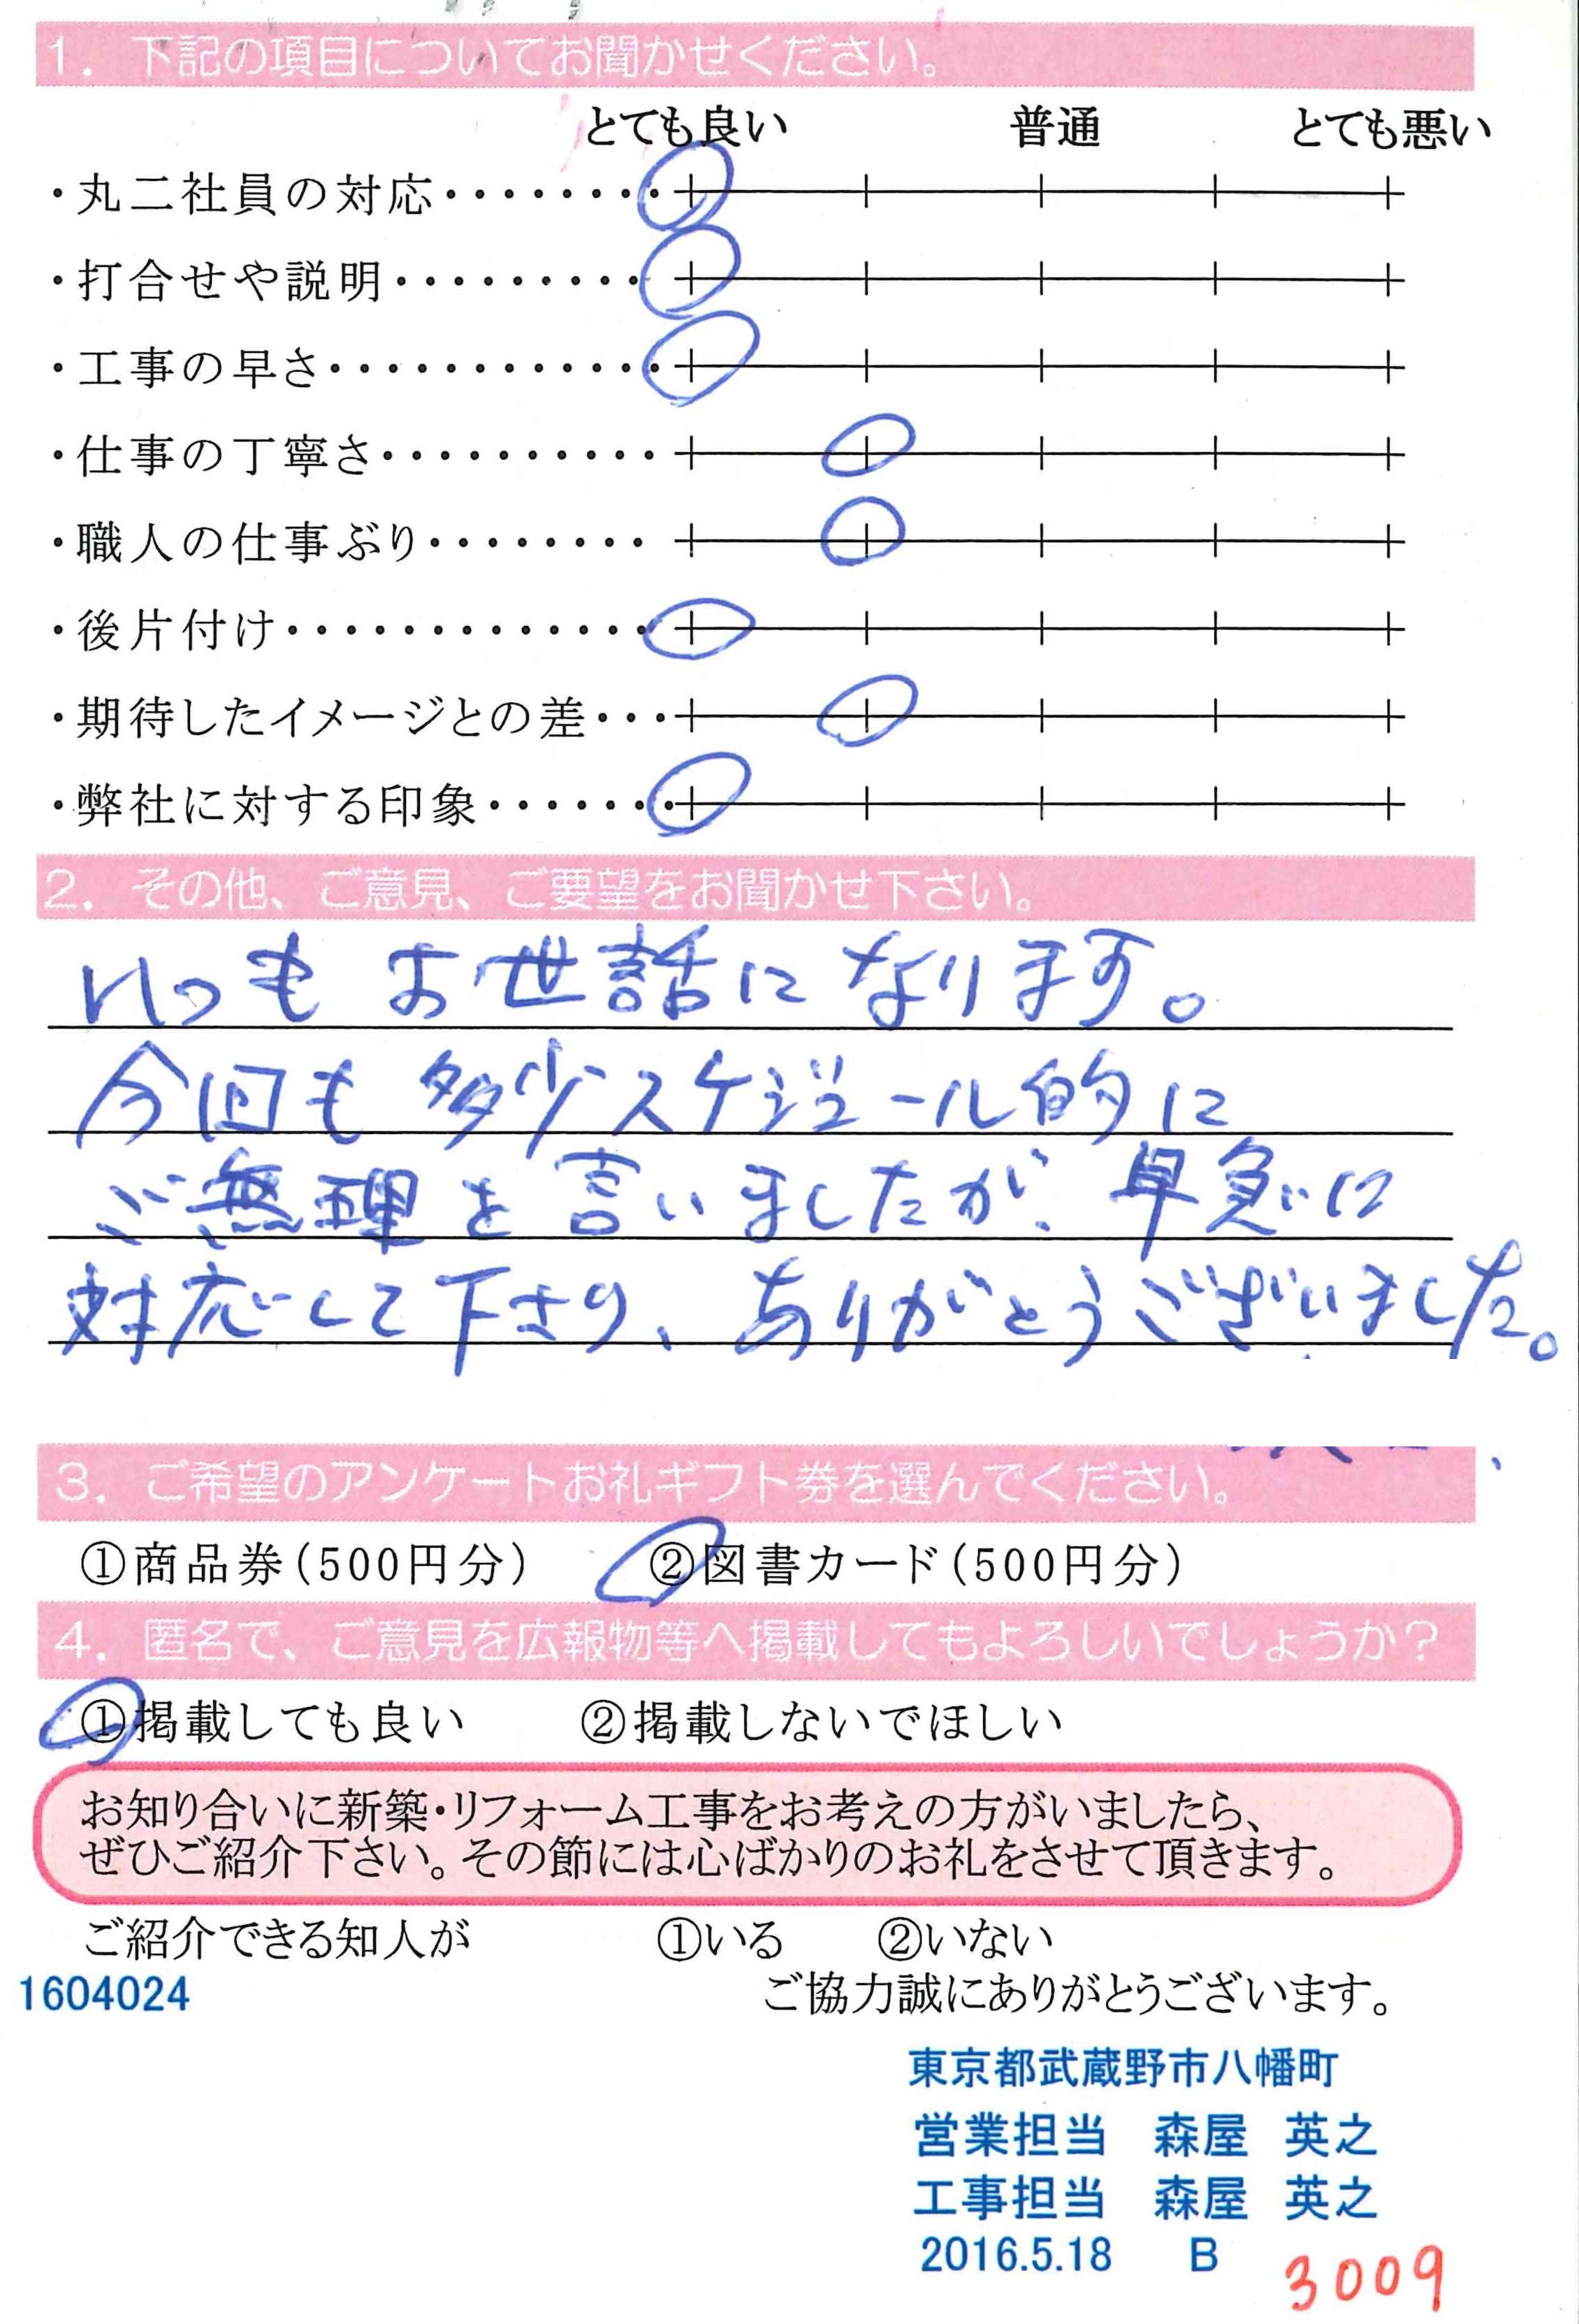 1. 下記の項目についてお聞かせください。
とても良い 普通 とても悪い
・丸二社員の対応・・・・・・・・
・打合せや説明・・・・・・・・・
・工事の早さ・・・・・・・・・・・・
・仕事の丁寧さ・・・・・・・・・・
・職人の仕事ぶり・・・・・・・・
・後片付け・・・・・・・・・・・・・
・期待したイメージとの差・・・
・弊社に対する印象・・・・・・・
2. その他、ご意見、ご要望をお聞かせ下さい。
いつもお世話になります。
今回も多少スケジュール的に
ご無理を言いましたが、早急に
対応して下さり、ありがとうございました。
3. ご希望のアンケートお礼ギフト券を選んでください。
①商品券(500円分) ②図書カード(500円分)
4. 匿名で、ご意見を広報物等へ掲載してもよろしいでしょうか?
①掲載しても良い ②掲載しないでほしい
お知り合いに新築・リフォーム工事をお考えの方がいましたら、
ぜひご紹介下さい。その節には心ばかりのお礼をさせて頂きます。
ご紹介できる知人が ①いる ②いない
1604024 ご協力誠にありがとうございます。
東京都武蔵野市八幡町
営業担当 森屋 英之
工事担当 森屋 英之
2016.5.18 B 3009